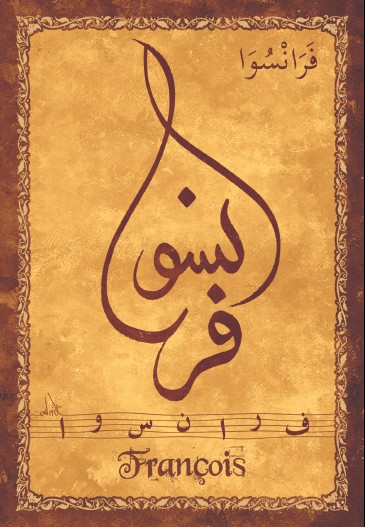 فَرَانْسُوَا
فرانسوا
ف ر ا ن س و ا
François